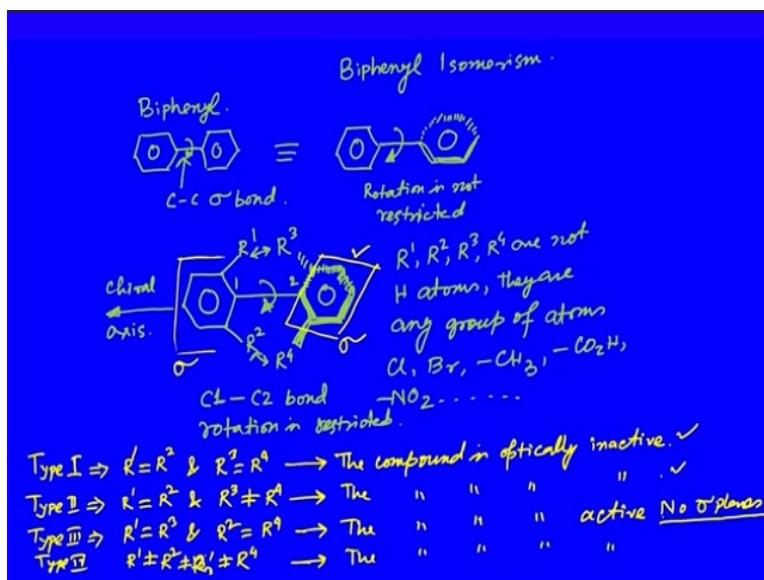 Biphenyl Isomerism.
Biphenyl.
≡
C-C σ bond.
Rotation is not
restricted
R¹ ↔ R³ ✓
R¹, R², R³, R⁴ are not
H atoms, they are
any group of atoms
Cl, Br, -CH₃, -CO₂H,
-NO₂ ......
chiral
axis.
1 2
R² ↔ R⁴
σ σ
C1-C2 bond
rotation is restricted.
Type I ⇒ R¹=R² & R³=R⁴ → The compound is optically inactive. ✓
Type II ⇒ R¹=R² & R³≠R⁴ → The " " " " . ✓
Type III ⇒ R¹=R³ & R²=R⁴ → The " " " active No σ planes
Type IV R¹≠R²≠R³≠R⁴ → The " " " "